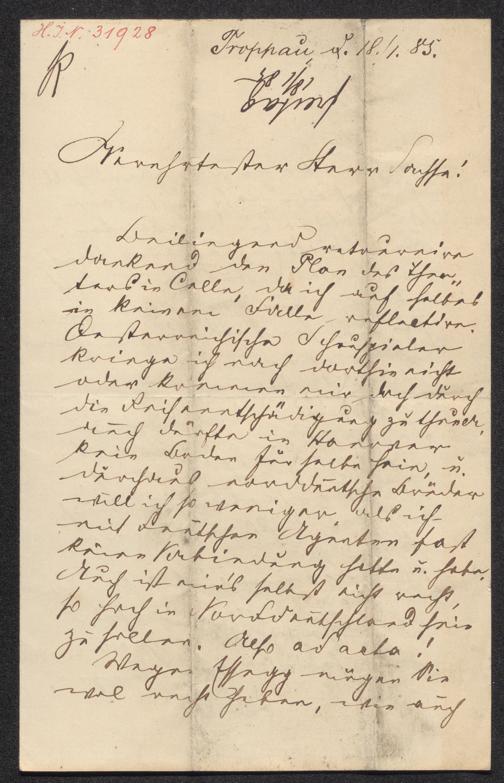 H.I.N. 31928
Troppau d. 18./1. 85.
18/1 85
Verehrtester Herr Sachse!
Beiliegend retournire
dankend den Plan des Thea„
ters in Celle, da ich auf selbes
in keinem Falle reflectire.
Oesterreichische Schauspieler
kriege ich nach dorthin nicht
oder kommen mir doch durch
die Reiseentschädigung zu theuer,
auch dürfte in Hannover
kein Boden für selbe sein, u.
durchaus norddeutsche Brüder
will ich so weniger als ich
mit deutschen Agenten fast
keine Verbindung hatte u. habe.
Auch ist mir's selbst nicht recht,
so hoch in Norddeutschland sein
zu sollen. Also ad acta!
Wegen mögen Sie
wol recht haben, wie auch